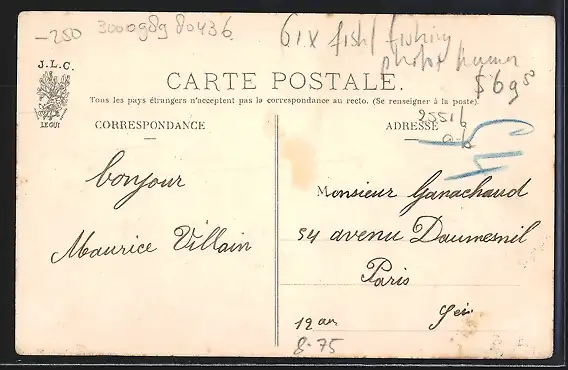 -250 3000989 80436
61x fish/ fishing
photo humor
$69 50
J.L.C.
LE GUI
CARTE POSTALE.
Tous les pays étrangers n'acceptent pas la correspondance au recto. (Se renseigner à la poste).
CORRESPONDANCE
ADRESSE
25516
bonjour
Maurice Villain
Monsieur Ganachaud
54 avenu Daumesnil
Paris
12 arr
8-75